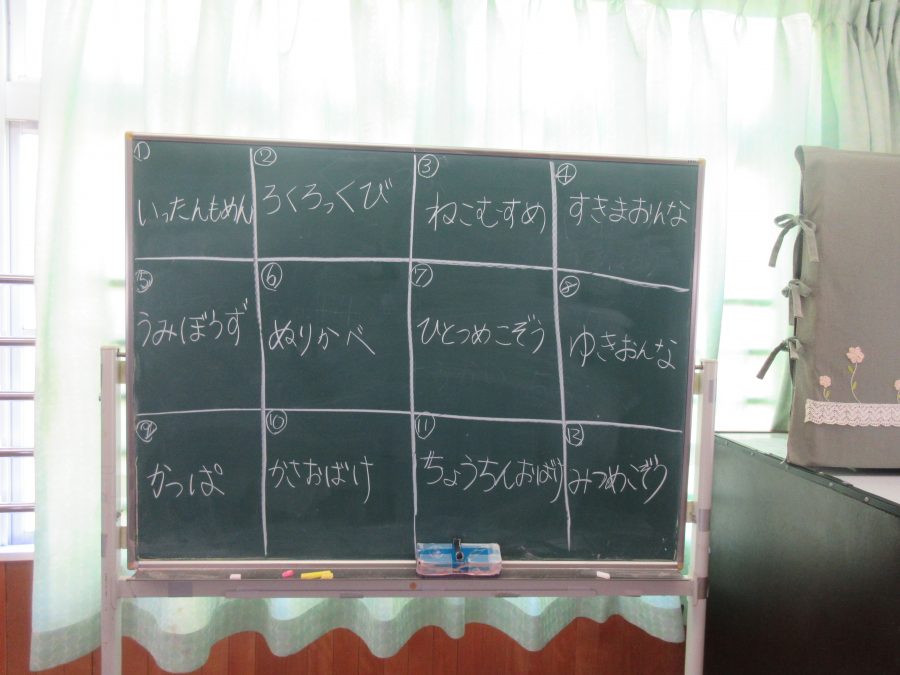 ① いったんもめん
② ろくろっくび
③ ねこむすめ
④ すきまおんな
⑤ うみぼうず
⑥ ぬりかべ
⑦ ひとつめこぞう
⑧ ゆきおんな
⑨ かっぱ
⑩ かさおばけ
⑪ ちょうちんおばけ
⑫ みつめこぞう